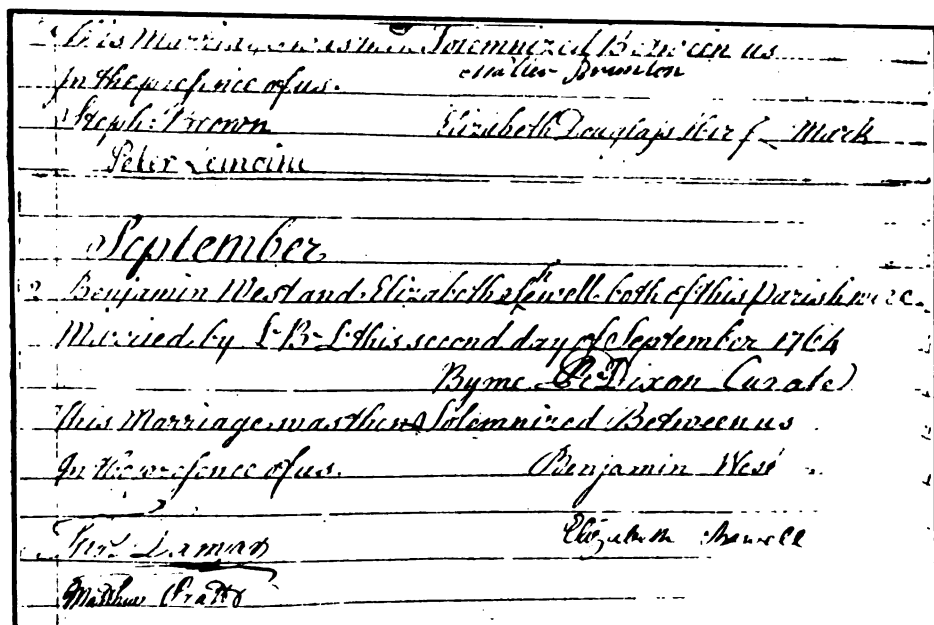 This Marriage was then Solemnized Between us
In the presence of us. Brunton
Steph: Brown Elizabeth Douglass Her Mark
Peter Lemoine
September
2 Benjamin West and Elizabeth Shewell both of this parish were
Married by L-B-L this second day of September 1764
By me Dixon Curate
This Marriage was then Solemnized Between us
In the presence of us. Benjamin West
Elizabeth Shewell
Matthew Pratt